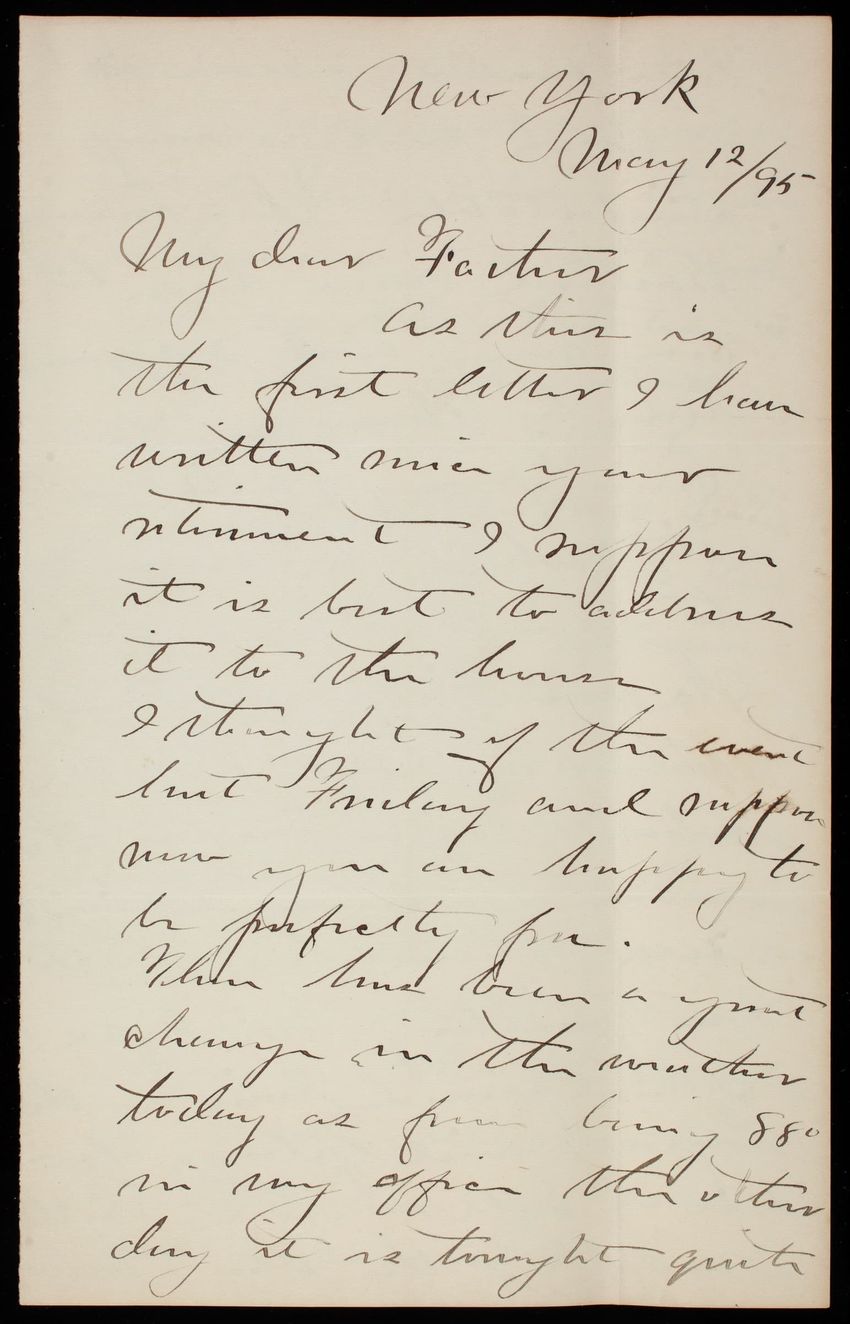 New York
May 12/95
My dear Father
As this is
the first letter I have
written since your
retirement I suppose
it is best to address
it to the house
I thought of the event
last Friday and suppose
now you are happy to
be perfectly free.
There has been a great
change in the weather
today as from being 88°
in my office the other
day it is tonight quite